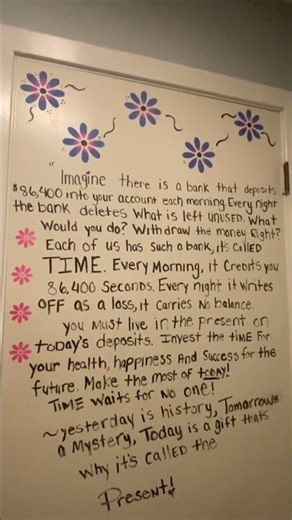 "Imagine there is a bank that deposits
$86,400 into your account each morning. Every night
the bank deletes What is left UNUSED. What
Would you do? Withdraw the money Right?
Each of us has such a bank, it's CALLED
TIME. Every Morning, it Credits you
86,400 Seconds. Every night it Writes
OFF as a loss, it Carries No balance.
you Must live in the present on
today's deposits. Invest the time For
your health, happiness And Success for the
future. Make the most of today!
Time Waits for No one!
~yesterday is history, Tomorrow
a Mystery, Today is a gift thats
why it's CALLED the
Present!